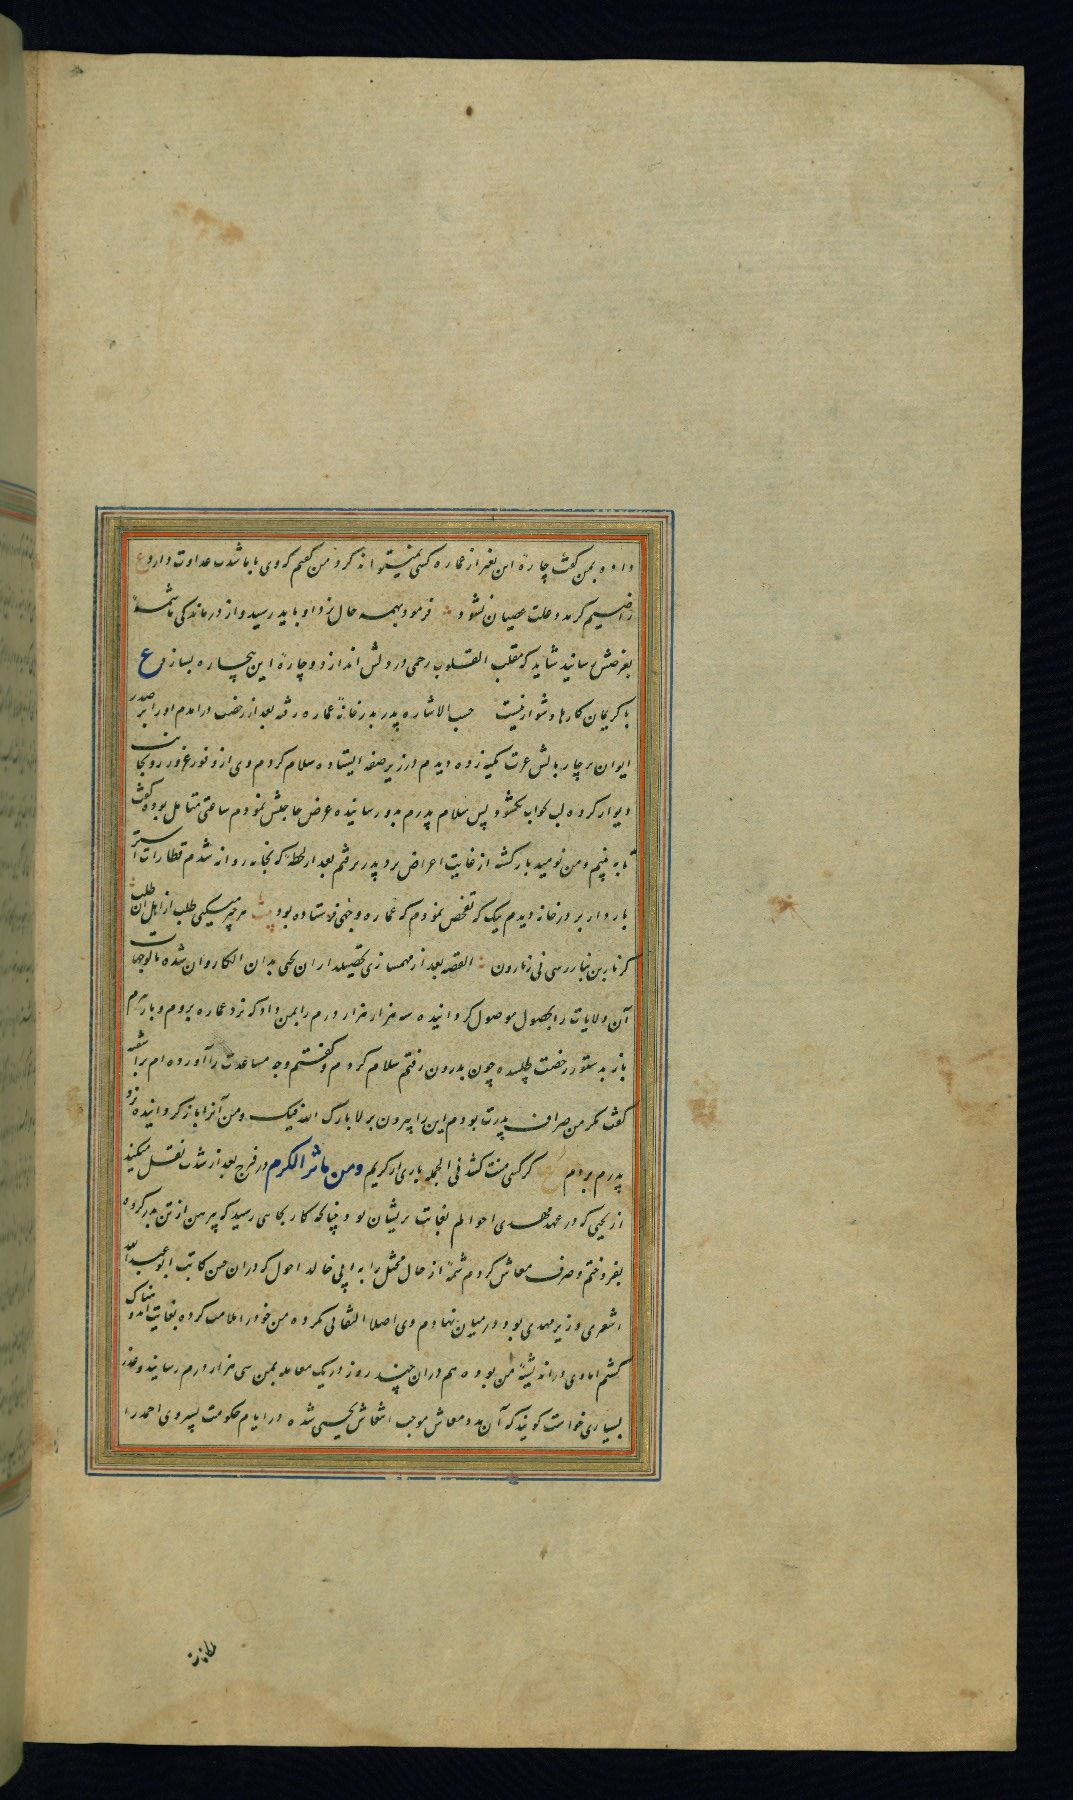 داده بمن گفت چارهٔ این بغیر از عماره کسی نمیتواند کرد من گفتم که وی با ما شدت عداوت دارد ع
کرم علت عصیان نشود فرمود بهمه حال نزد او باید رسید و از درماندگی ما شمهٔ
بعرضش رسانید شاید که مقلب القلوب رحمی در دلش اندازد و چارهٔ این بیچاره بسازد ع
با کریمان کارها دشوار نیست حسب الاشاره پدر بدر خانهٔ عماره رفته بعد از رخصت درامدم او را بر صدر
ایوان بر چار بالش عزت تکیه زده دیدم در زیر صفه ایستاده سلام کردم وی از وفور غرور رو بجانب
دیوار کرده لب بجواب نگشود پس سلام پدرم بدو رسانیده عرض حاجتش نمودم ساعتی متامل بوده گفت
تا به بینم و من نومید بازگشته از غایت اعراض نزد پدر نرفتم بعد از لحظهٔ که بخانه روانه شدم قطارات استر
باردار بر در خانه دیدم نیک که تفحص نمودم که عماره وجهی فرستاده بود بیت هر چه میکنی طلب از اهل آن طلب
القصه بعد از مهمسازی تحصیلداران یحیی بدان الکا روان شده مالوجهات
آن ولایات را بحصول موصول گردانیده سه هزار هزار درم را بمن داد که نزد عماره بردم و بار دیگرم
باز بدستور رخصت طلبیده چون بدرون رفتم سلام کردم و گفتم وجه مساعدت را آورده ام براشفته
گفت مگر من صراف پدرت بودم این را بیرون بر لا بارک الله فیک و من آنرا باز گردانیده نزد
پدرم بردم ع گر کسی منت کشد فی الجمله باری از کریم ومن ماثر الکرم در فرج بعد از شدت نقل میکنند
از یحیی که در عهد مهدی احوالم بغایت پریشان بود چنانکه کار بجایی رسید که پیرهن از تن بدر کرده
بفروختم و صرف معاش کردم شمهٔ از حال مختل را به ابی خالد احول که دران حین کاتب ابو عبدالله
اشعری وزیر مهدی بود در میان نهادم وی اصلا التفاتی نکرده من خود را ملامت کرده بغایت اندوهناک
گشتم اما وی در اندیشهٔ من بوده هم دران چند روز در یک معامله بمن سی هزار درم رسانید و عذر
بسیاری خواست گویند که آن مدد معاش موجب انتعاش یحیی شده در ایام حکومت پسر وی احمد را